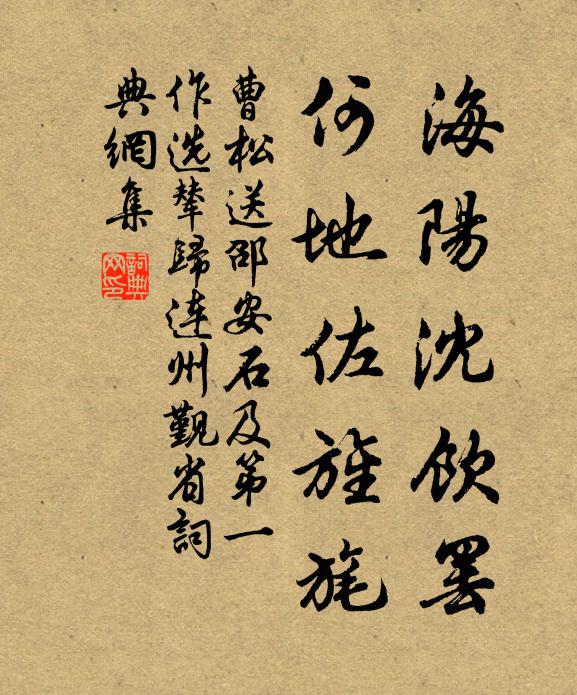 海陽沈飲罷
何地佐旌旄
曹松送邵安石及第一
作选輦歸连州覲省詞
典網集
詞典网印